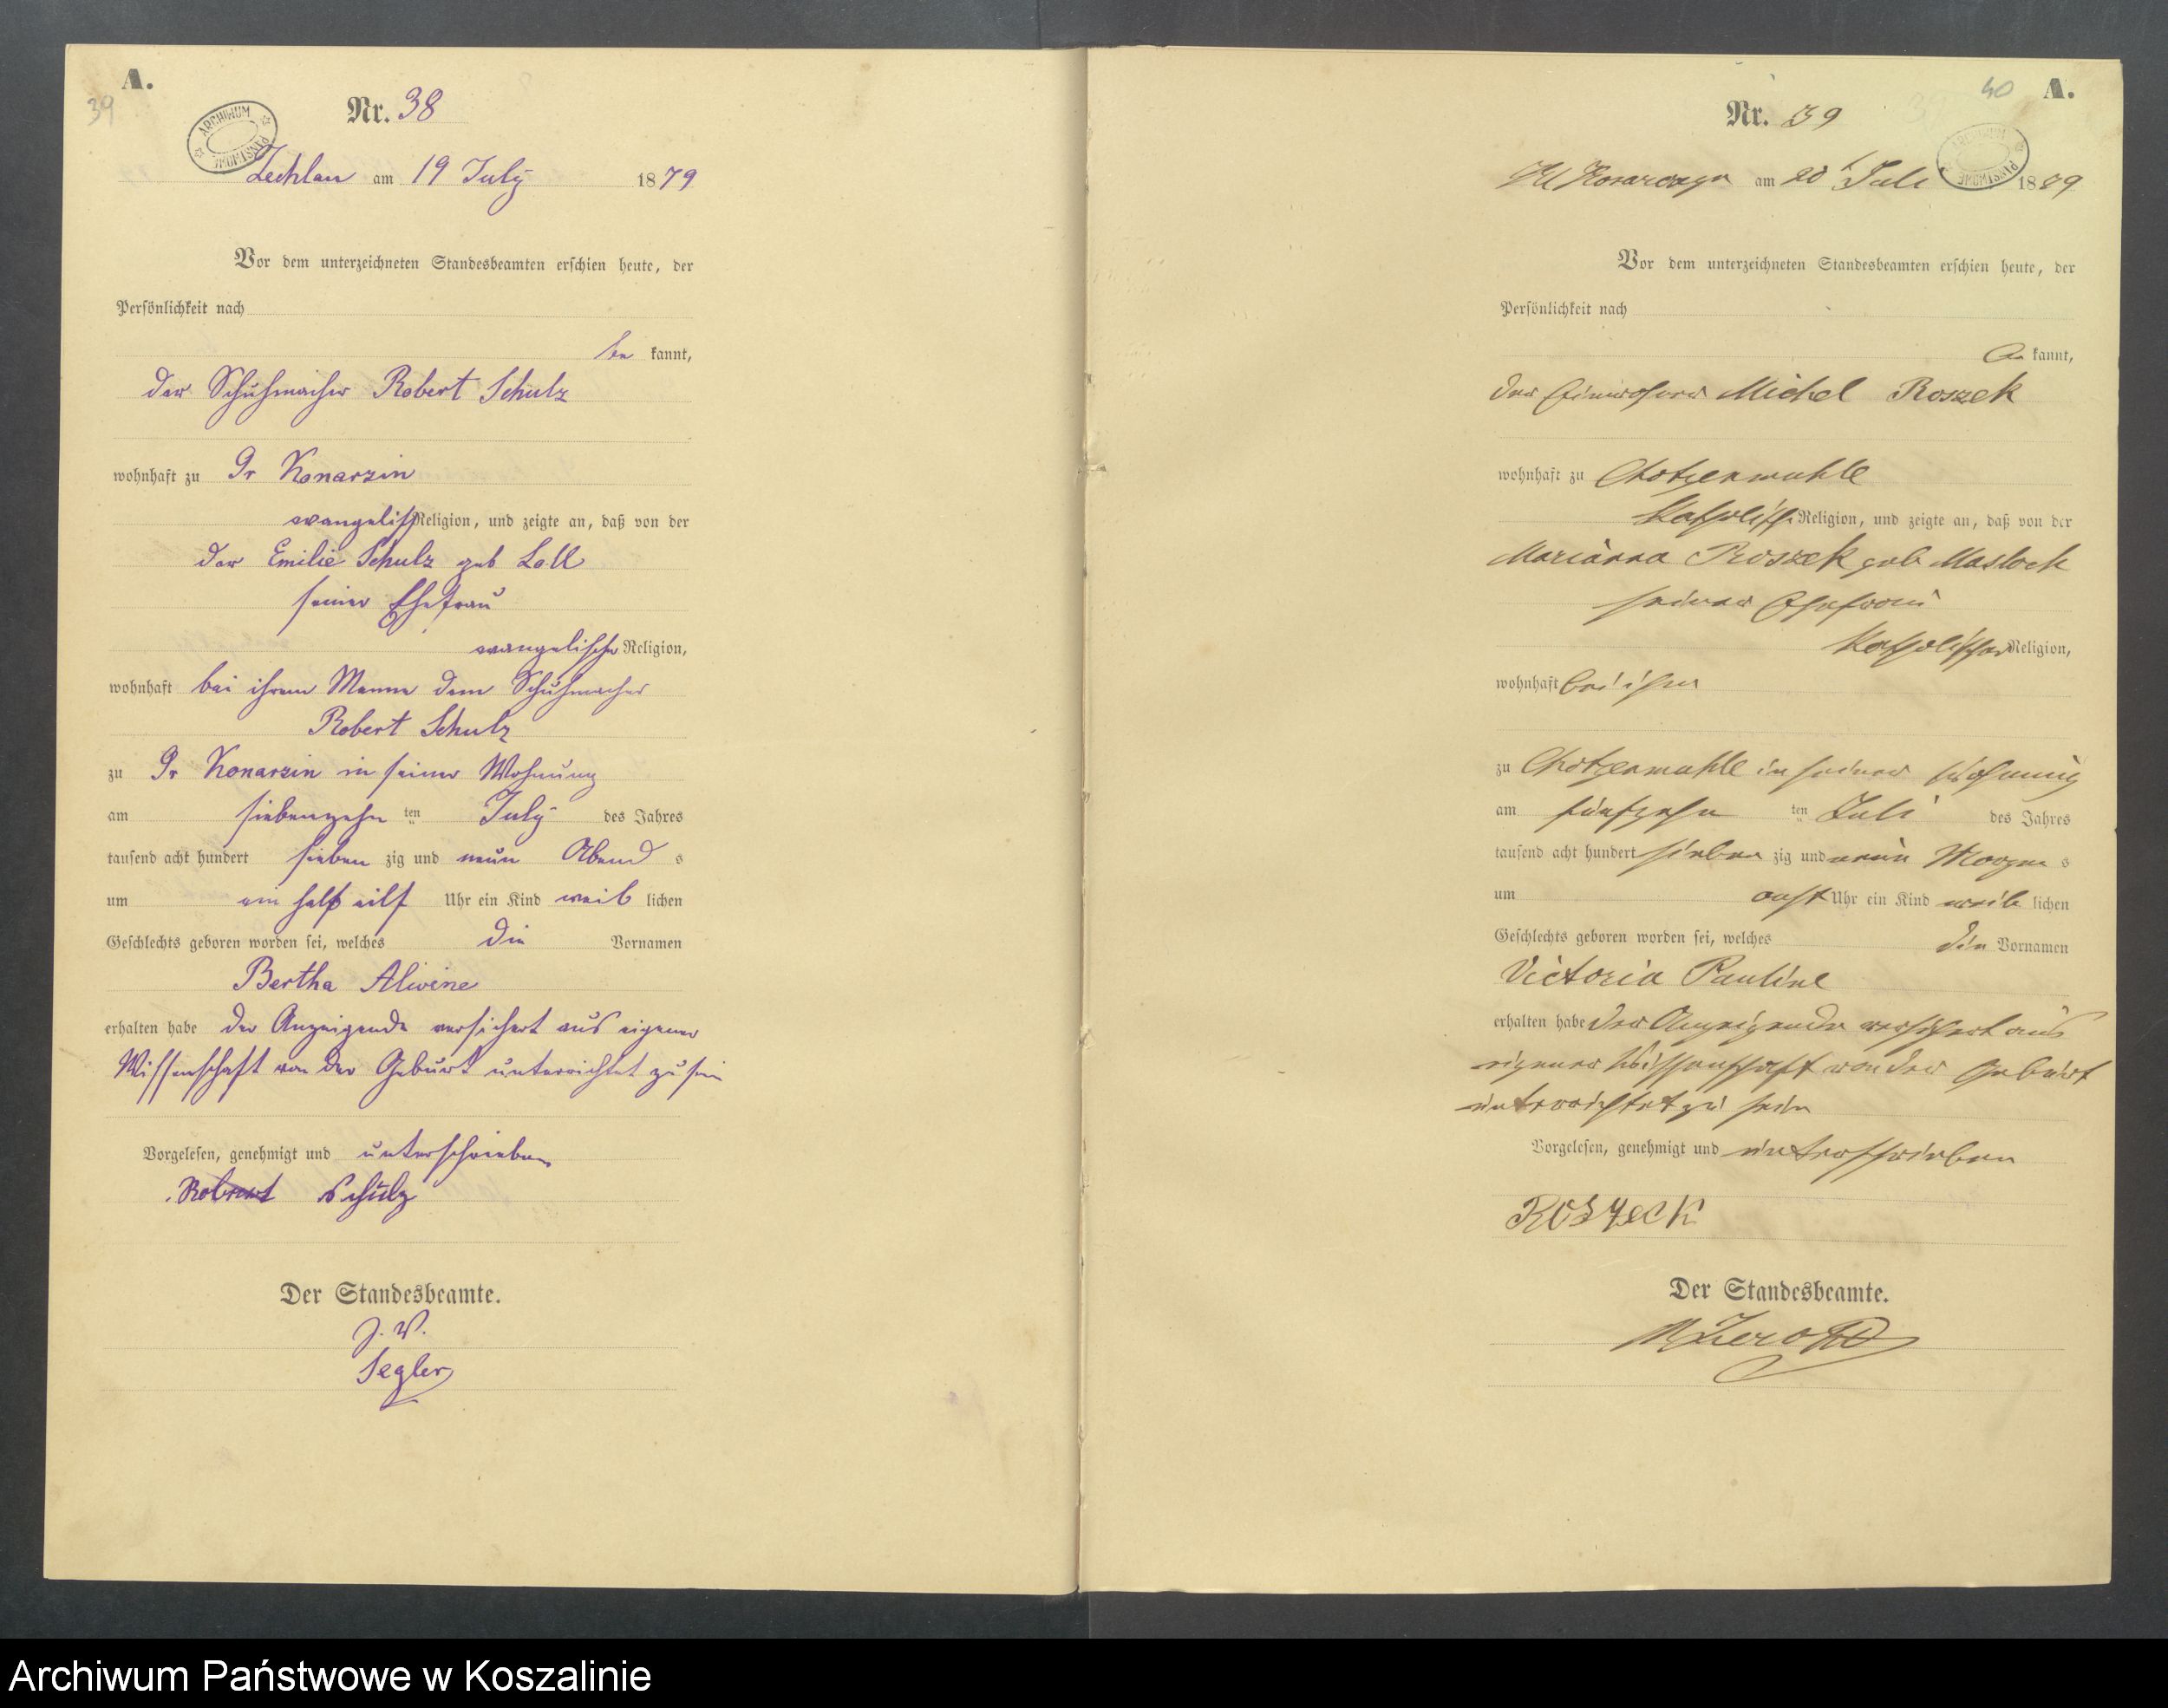 A.
39
Nr. 38
ARCHIWUM PAŃSTWOWE
Zechlau am 19 July 1879
Vor dem unterzeichneten Standesbeamten erschien heute, der
Persönlichkeit nach
be kannt,
der Schuhmacher Robert Schulz
wohnhaft zu Gr Konarzin
evangelisch Religion, und zeigte an, daß von der
der Emilie Schulz geb Loll
seiner Ehefrau
evangelischer Religion,
wohnhaft bei ihrem Manne dem Schuhmacher
Robert Schulz
zu Gr Konarzin in seiner Wohnung
am siebenzehn ten July des Jahres
tausend acht hundert sieben zig und neun Abend s
um ein halb eilf Uhr ein Kind weib lichen
Geschlechts geboren worden sei, welches die Vornamen
Bertha Alwine
erhalten habe der Anzeigende versichert aus eigener
Wissenschaft von der Geburt unterrichtet zu sein
Vorgelesen, genehmigt und unterschrieben
Robert Schulz
Der Standesbeamte.
J. V.
Segler
40
A.
Nr. 39
ARCHIWUM PAŃSTWOWE
Kl Konarczyn am 20 Juli 1879
Vor dem unterzeichneten Standesbeamten erschien heute, der
Persönlichkeit nach
be kannt,
der Einwohner Michel Roszek
wohnhaft zu Chotzenmuhle
katholisch Religion, und zeigte an, daß von der
Marianna Roszek geb Maslock
seiner Ehefrau
katholischer Religion,
wohnhaft bei ihm
zu Chotzenmuhle in seiner Wohnung
am fünfzehn ten Juli des Jahres
tausend acht hundert sieben zig und neun Morgen s
um acht Uhr ein Kind weib lichen
Geschlechts geboren worden sei, welches die Vornamen
Victoria Pauline
erhalten habe der Anzeigende versichert aus
eigener Wissenschaft von der Geburt
unterrichtet zu sein
Vorgelesen, genehmigt und unterschrieben
Roszeck
Der Standesbeamte.
Archiwum Państwowe w Koszalinie